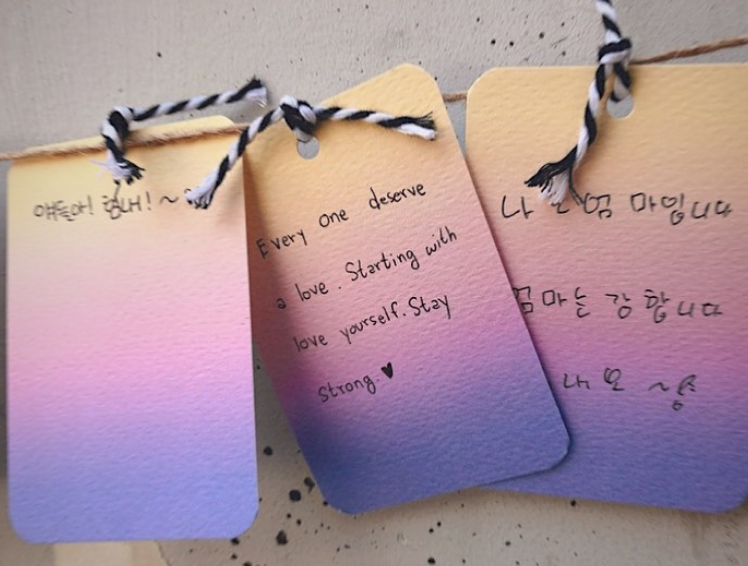 얘들아! 힘내! ~
Every one deserve
a love. Starting with
love yourself. Stay
strong. ♥
나 엄 마입니다
엄마는 강 합니다